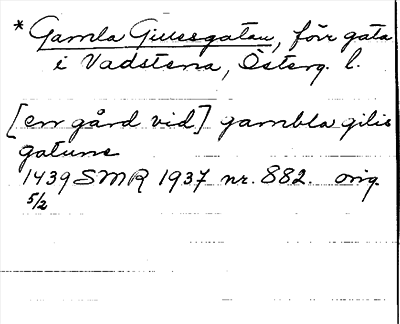 * Gamla Giliesgatan, förr gata
i Vadstena, Österg. l.
[en gård vid] gambla gilis
gatune
1439 SMR 1937 nr. 882. orig.
5/2